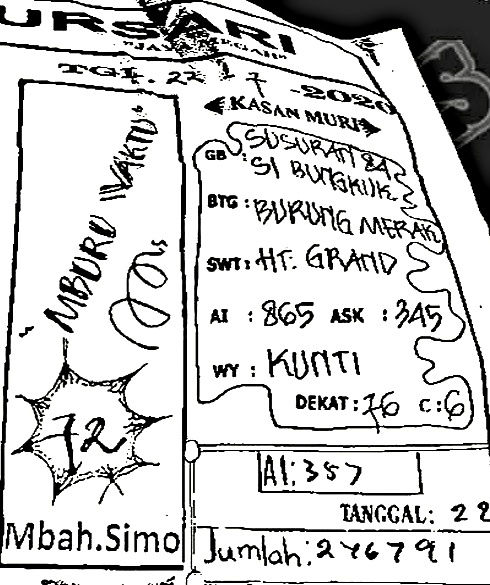 URSARI
TGL. 22 / 7 -2020
KASAN MURI
"MBURU WAKTU"
72
Mbah.Simo
GB : SUSURAN 84
SI BUNGKUK
BTG : BURUNG MERAK
SWT : HT. GRAND
AI : 865 ASK : 345
WY : KUNTI
DEKAT : 76 C : 6
AI : 357
TANGGAL: 22
Jumlah: 276791